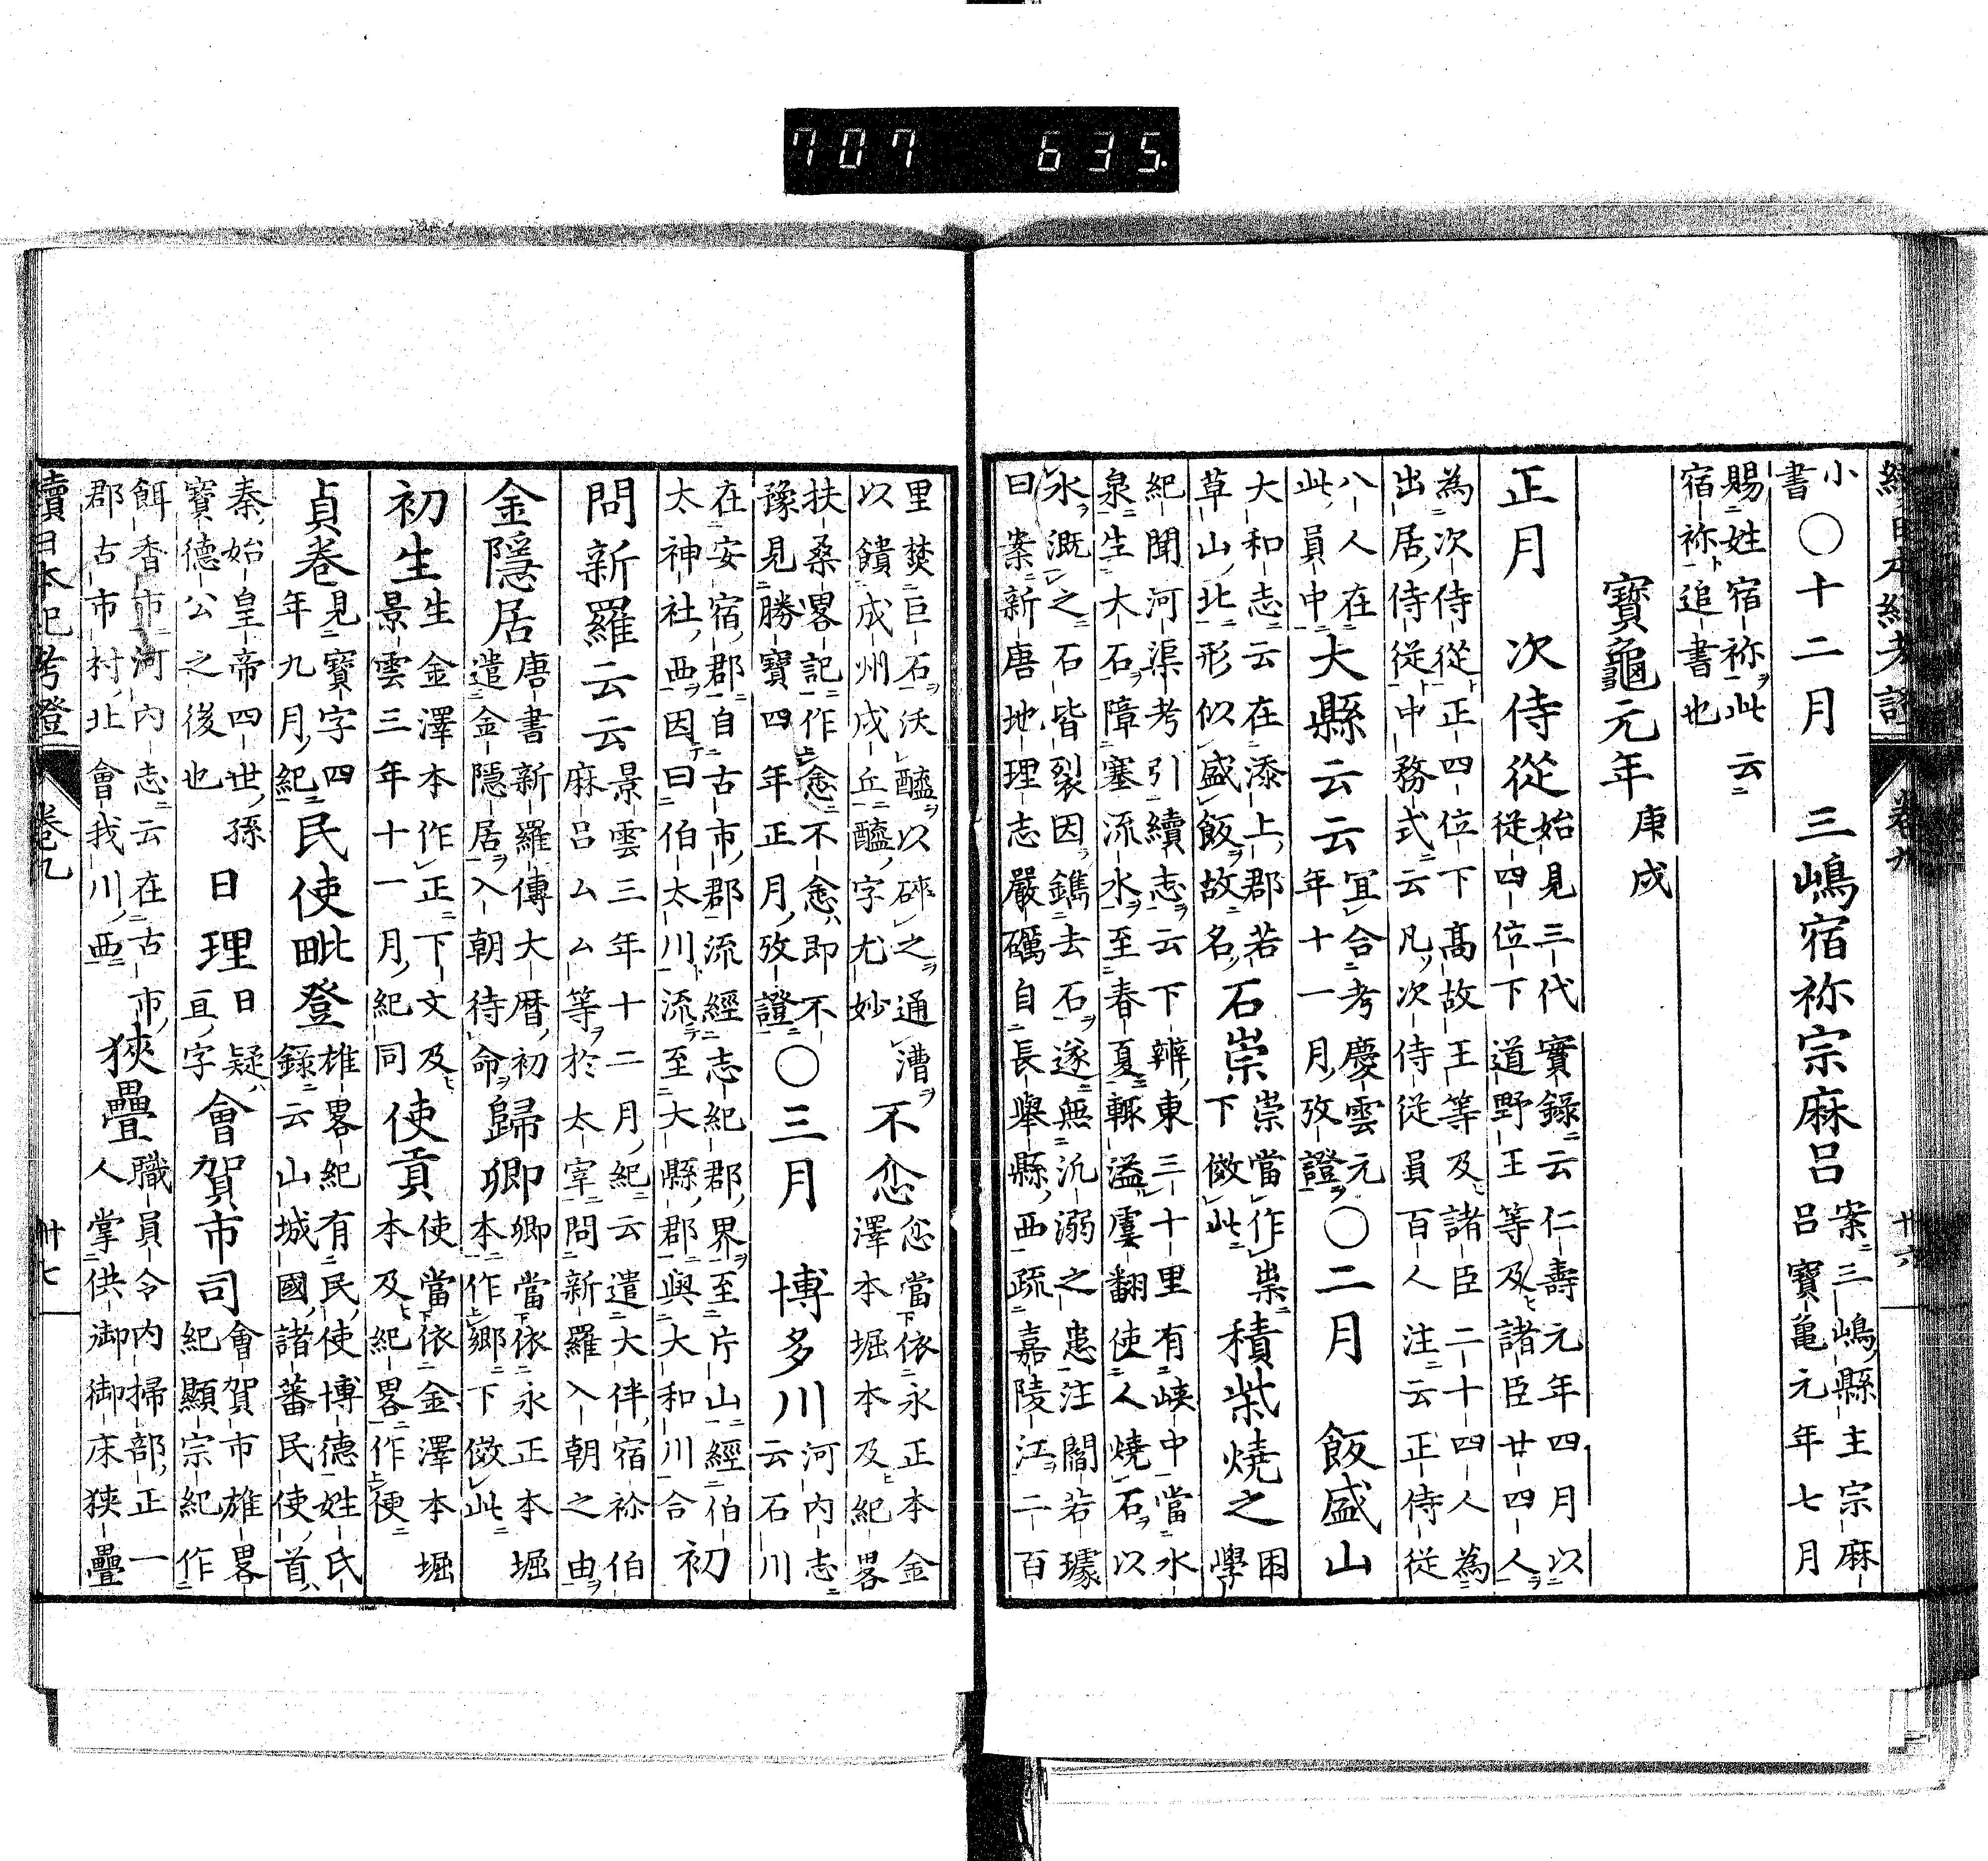 707 635.
續日本紀考證 卷九 廿六
小書○十二月 三嶋宿祢宗麻呂案三嶋縣主宗麻呂寶亀元年七月
賜姓宿祢此云宿祢追書也
寶龜元年庚戌
正月 次侍從始見三代實錄云仁壽元年四月以從四位下道野王等及諸臣廿四人
為次侍從正四位下高故王等及諸臣二十四人為出居侍從中務式云凡次侍從員百人注云正侍從
八人在此員中大縣云云宜合考慶雲元年十一月攷證○二月 飯盛山
大和志云在添上郡若草山北形似盛飯故名石崇崇當作祟下倣此積柴燒之困學
紀聞河渠考引續志云下辨東三十里有峽中當水泉生大石障塞流水至春夏輒溢虞翻使人燒石以
水漑之石皆裂因鐫去石遂無氿溺之患注閻若璩曰案新唐地理志嚴礪自長舉縣西疏嘉陵江二百
里焚巨石沃醯以碎之通漕以饋成州戍丘醯字尤妙不悆悆當依永正本金澤本堀本及紀畧
扶桑畧記作悆不悆即不豫見勝寶四年正月攷證○三月 博多川河內志云石川
在安宿郡自古市郡流經志紀郡界至片山經伯太神社西因曰伯太川流至大縣郡與大和川合初
問新羅云云景雲三年十二月紀云遣大伴宿祢伯麻呂ムム等於太宰問新羅入朝之由
金隱居唐書新羅傳大曆初遣金隱居入朝待命歸卿卿當依永正本堀本作鄉下倣此
初生生金澤本作正下文及景雲三年十一月紀同使貢使當依金澤本堀本及紀畧作便
貞卷見寶字四年九月紀民使毗登雄畧紀有民使博德姓氏錄云山城國諸蕃民使首
秦始皇帝四世孫寶德公之後也日理日疑亘字會賀市司會賀市雄畧紀顯宗紀作
餌香市河內志云在古市郡古市村北會我川西狹疊職員令內掃部正一人掌供御御床狹疊
續日本紀考證 卷九 卅七